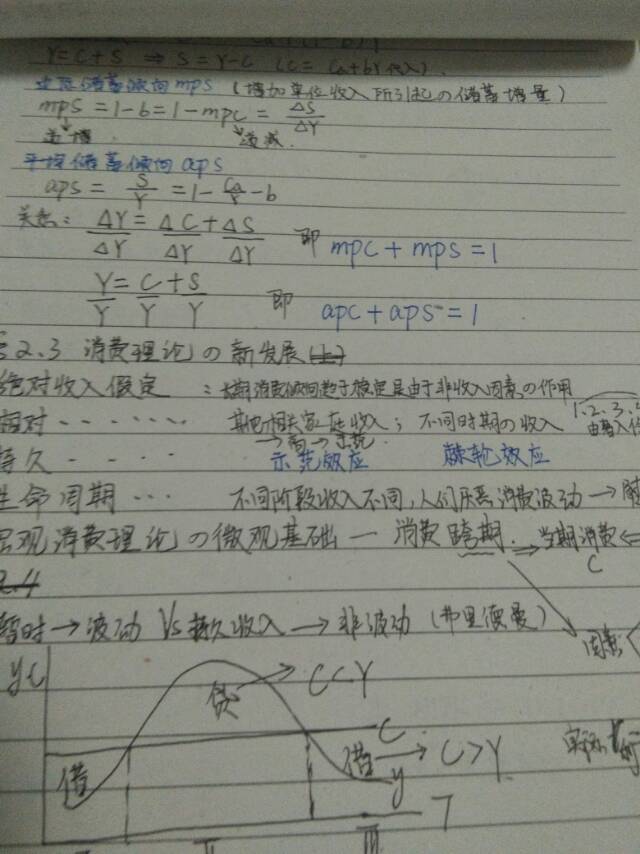 Y=C+S ⇒ S=Y-C (C=Ca+bY代入).
边际储蓄倾向mps (增加单位收入所引起の储蓄增量)
mps=1-b=1-mpc=ΔS/ΔY
递增 递减.
平均储蓄倾向aps
aps=S/Y=1-Ca/Y-b
关系: ΔY/ΔY=ΔC/ΔY+ΔS/ΔY 即 mpc+mps=1
Y/Y=C/Y+S/Y 即 apc+aps=1
2.3 消费理论の新发展
绝对收入假定 : 长期消费倾向趋于稳定是由于非收入因素の作用
相对······ 其他相关家庭收入; 不同时期の收入 1.2.3.
示范效应 棘轮效应
持久····
生命周期··· 不同阶段收入不同,人们厌恶消费波动→
宏观消费理论の微观基础—消费跨期. ⇒当期消费⇐
C
2.4
暂时→波动 Vs 持久收入→非波动 (弗里德曼)
因素
yc
贷 → C<Y
C
借 借 → C>Y.
y
T
II III